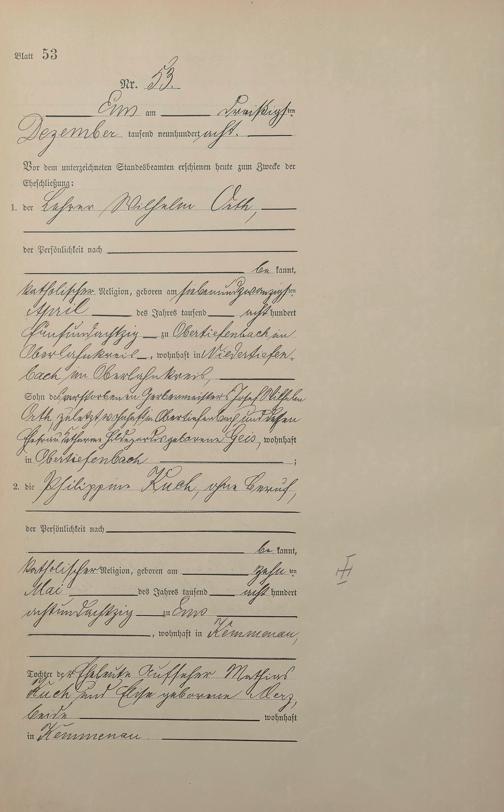 Blatt 53
Nr. 53.
Ems am Dreißigsten
Dezember tausend neunhundert acht.
Vor dem unterzeichneten Standesbeamten erschienen heute zum Zwecke der
Eheschließung:
1. der Lehrer Wilhelm Orth,
der Persönlichkeit nach
be kannt,
katholischer Religion, geboren am siebenundzwanzigsten
April des Jahres tausend acht hundert
fünfundachtzig zu Obertiefenbach im
Oberlahnkreis, wohnhaft in Niedertiefen-
bach im Oberlahnkreis,
Sohn des verstorbenen Gerbermeisters Josef Wilhelm
Orth, zuletzt wohnhaft in Obertiefenbach und dessen
Ehefrau geborene Geis, wohnhaft
in Obertiefenbach ;
2. die Philippine Kuch, ohne Beruf,
der Persönlichkeit nach
be kannt,
katholischer Religion, geboren am zehnten
Mai des Jahres tausend acht hundert
achtundachtzig zu Ems
, wohnhaft in Kemmenau,
Tochter der Eheleute Aufseher Mathias
Kuch und Elise geborene Merz,
beide wohnhaft
in Kemmenau